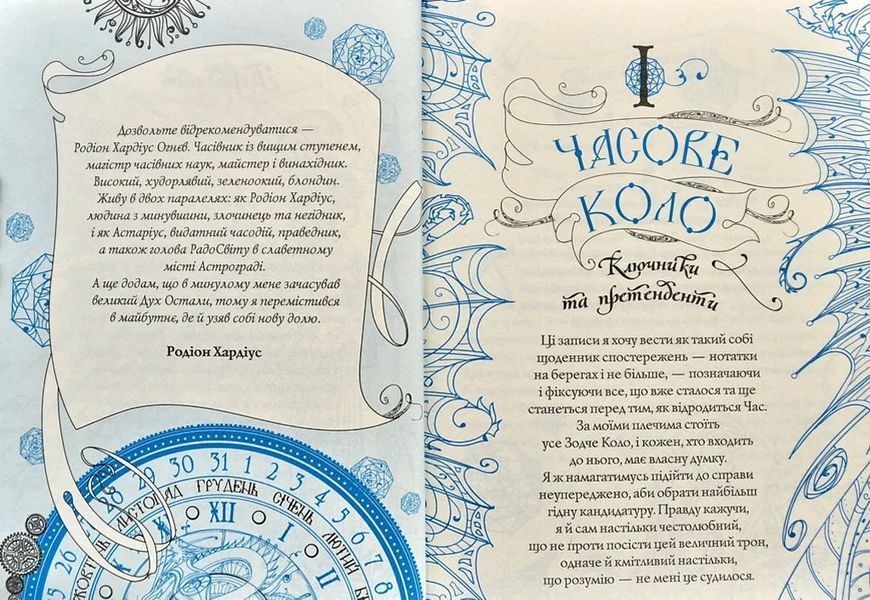 Дозвольте відрекомендуватися —
Родіон Хардіус Огнєв. Часівник із вищим ступенем,
магістр часівних наук, майстер і винахідник.
Високий, худорлявий, зеленоокий, блондин.
Живу в двох паралелях: як Родіон Хардіус,
людина з минувшини, злочинець та негідник,
і як Астаріус, видатний часодій, праведник,
а також голова РадоСвіту в славетному
місті Астрограді.
А ще додам, що в минулому мене зачасував
великий Дух Остали, тому я перемістився
в майбутнє, де й узяв собі нову долю.
Родіон Хардіус
25 26 28 29 30 31 1 2 3 4 5 6 7 8
ЖОВТЕНЬ ЛИСТОПАД ГРУДЕНЬ СІЧЕНЬ ЛЮТИЙ
XII I II
I
ЧАСОВЕ
КОЛО
Ключники
та претенденти
Ці записи я хочу вести як такий собі
щоденник спостережень — нотатки
на берегах і не більше, — позначаючи
і фіксуючи все, що вже сталося та ще
станеться перед тим, як відродиться Час.
За моїми плечима стоїть
усе Зодче Коло, і кожен, хто входить
до нього, має власну думку.
Я ж намагатимусь підійти до справи
неупереджено, аби обрати найбільш
гідну кандидатуру. Правду кажучи,
я й сам настільки честолюбний,
що не проти посісти цей величний трон,
одначе й кмітливий настільки,
що розумію — не мені це судилося.